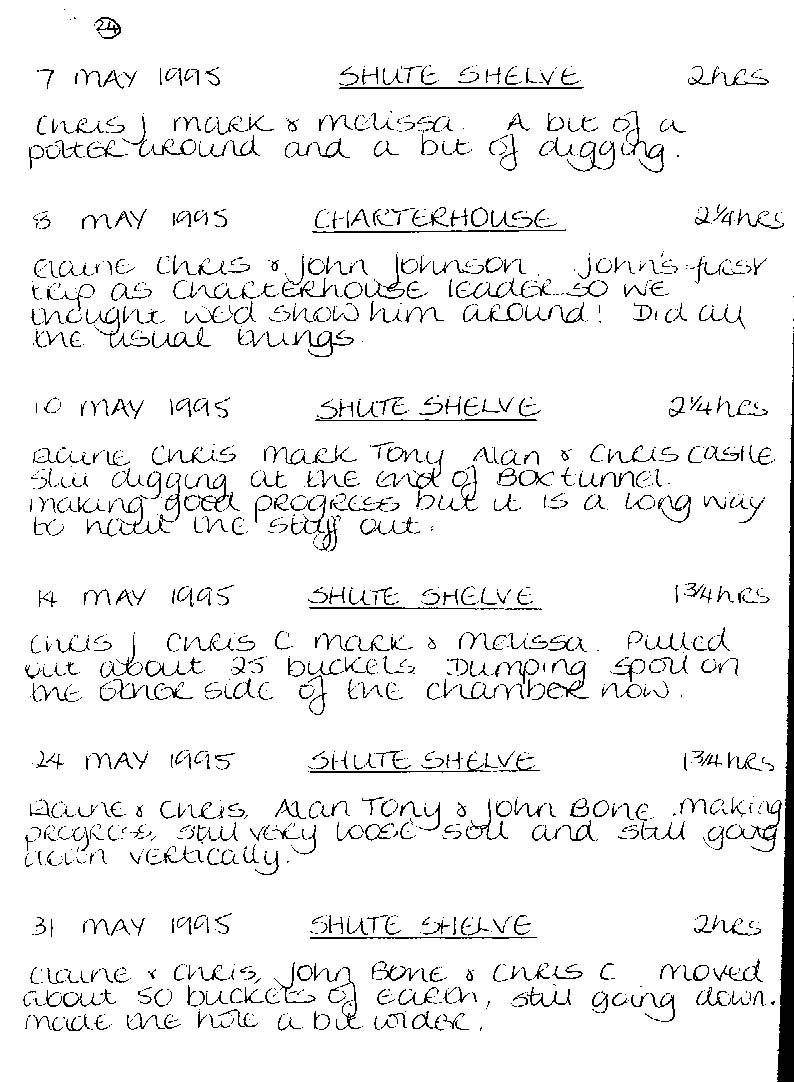 24
7 MAY 1995 SHUTE SHELVE 2hrs
Chris J Mark & Melissa. A bit of a
potter around and a bit of digging.
8 MAY 1995 CHARTERHOUSE 2¼hrs
Elaine Chris & John Johnson. John's first
trip as Charterhouse leader so we
thought we'd show him around! Did all
the usual things.
10 MAY 1995 SHUTE SHELVE 2¼hrs
Elaine Chris Mark Tony Alan & Chris Castle
still digging at the end of Box tunnel.
Making good progress but it is a long way
to haul the stuff out.
14 MAY 1995 SHUTE SHELVE 1¾hrs
Chris J Chris C Mark & Melissa. Pulled
out about 25 buckets. Dumping spoil on
the other side of the chamber now.
24 MAY 1995 SHUTE SHELVE 1¾hrs
Elaine & Chris, Alan Tony & John Bone. Making
progress, still very loose soil and still going
down vertically.
31 MAY 1995 SHUTE SHELVE 2hrs
Elaine & Chris, John Bone & Chris C. Moved
about 50 buckets of earth, still going down.
Made the hole a bit wider.